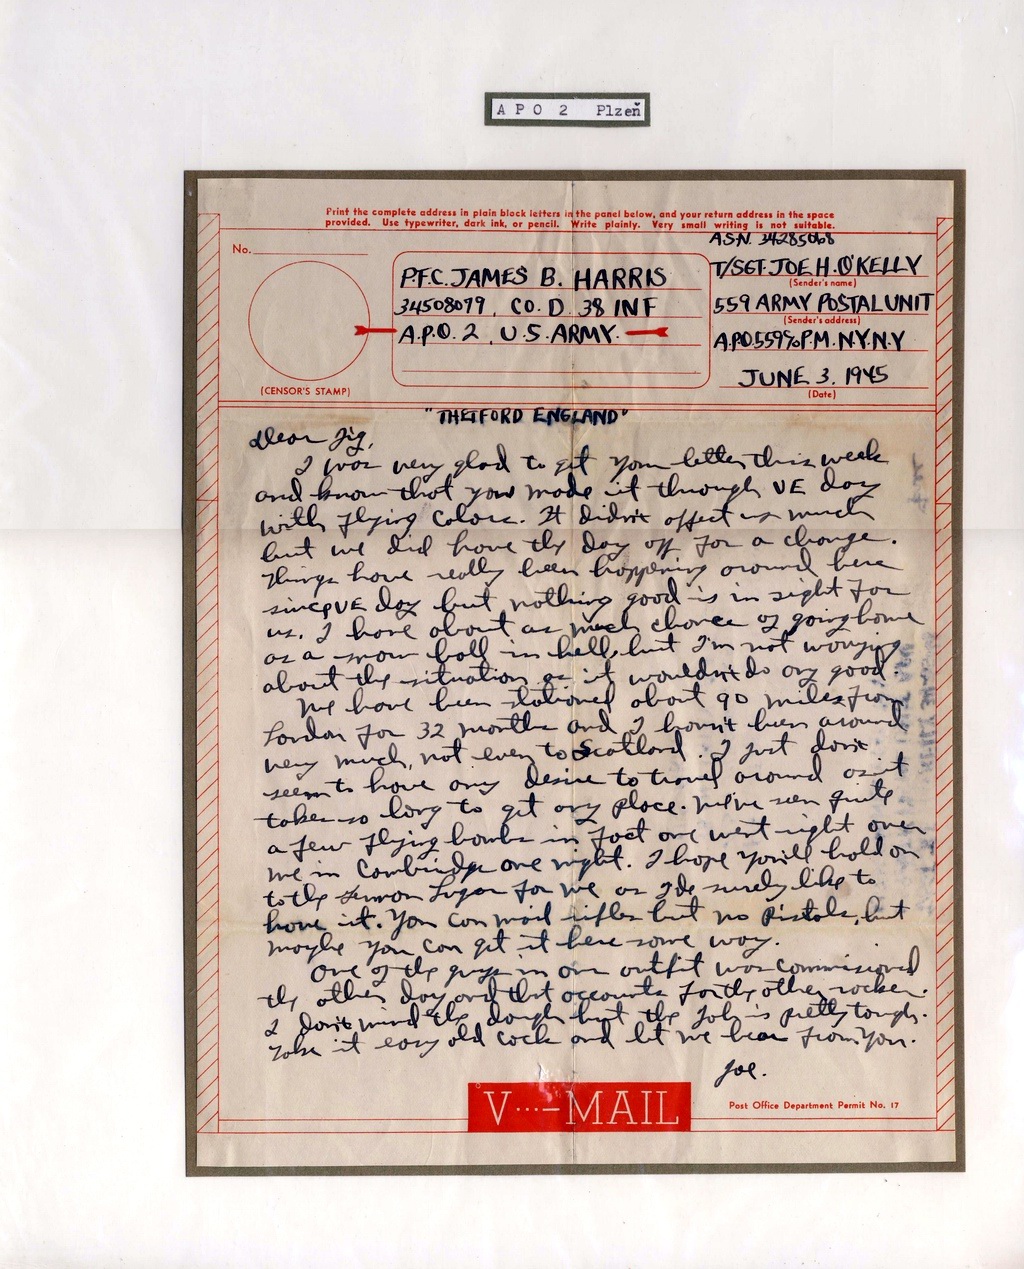 A P O 2 Plzeň
Print the complete address in plain block letters in the panel below, and your return address in the space
provided. Use typewriter, dark ink, or pencil. Write plainly. Very small writing is not suitable.
No.
(CENSOR'S STAMP)
P.F.C. JAMES B. HARRIS
34508079, CO. D. 38 INF
A.P.O. 2, U.S. ARMY.
A.S.N. 34285068
T/SGT. JOE H. O'KELLY
(Sender's name)
559 ARMY POSTAL UNIT
(Sender's address)
A.P.O. 559 % P.M. N.Y. N.Y
JUNE 3, 1945
(Date)
"THETFORD ENGLAND"
Dear Jig,
I was very glad to get your letter this week
and know that you made it through VE day
with flying colors. It didn't affect us much
but we did have the day off for a change.
Things have really been happening around here
since VE day but nothing good is in sight for
us. I have about as much chance of going home
as a snow ball in hell, but I'm not worrying
about the situation as it wouldn't do any good.
We have been stationed about 90 miles from
London for 32 months and I havn't been around
very much, not even to Scotland. I just don't
seem to have any desire to travel around as it
takes so long to get any place. We've seen quite
a few flying bombs in fact one went right over
me in Cambridge one night. I hope you'll hold on
to the Luger for me as I'de surely like to
have it. You can mail rifles but no pistols, but
maybe you can get it here some way.
One of the guys in our outfit was commisioned
the other day and that accounts for the other rocker.
I don't mind the dough but the job is pretty tough.
Take it easy old cock and let me hear from you.
Joe.
V···–MAIL
Post Office Department Permit No. 17